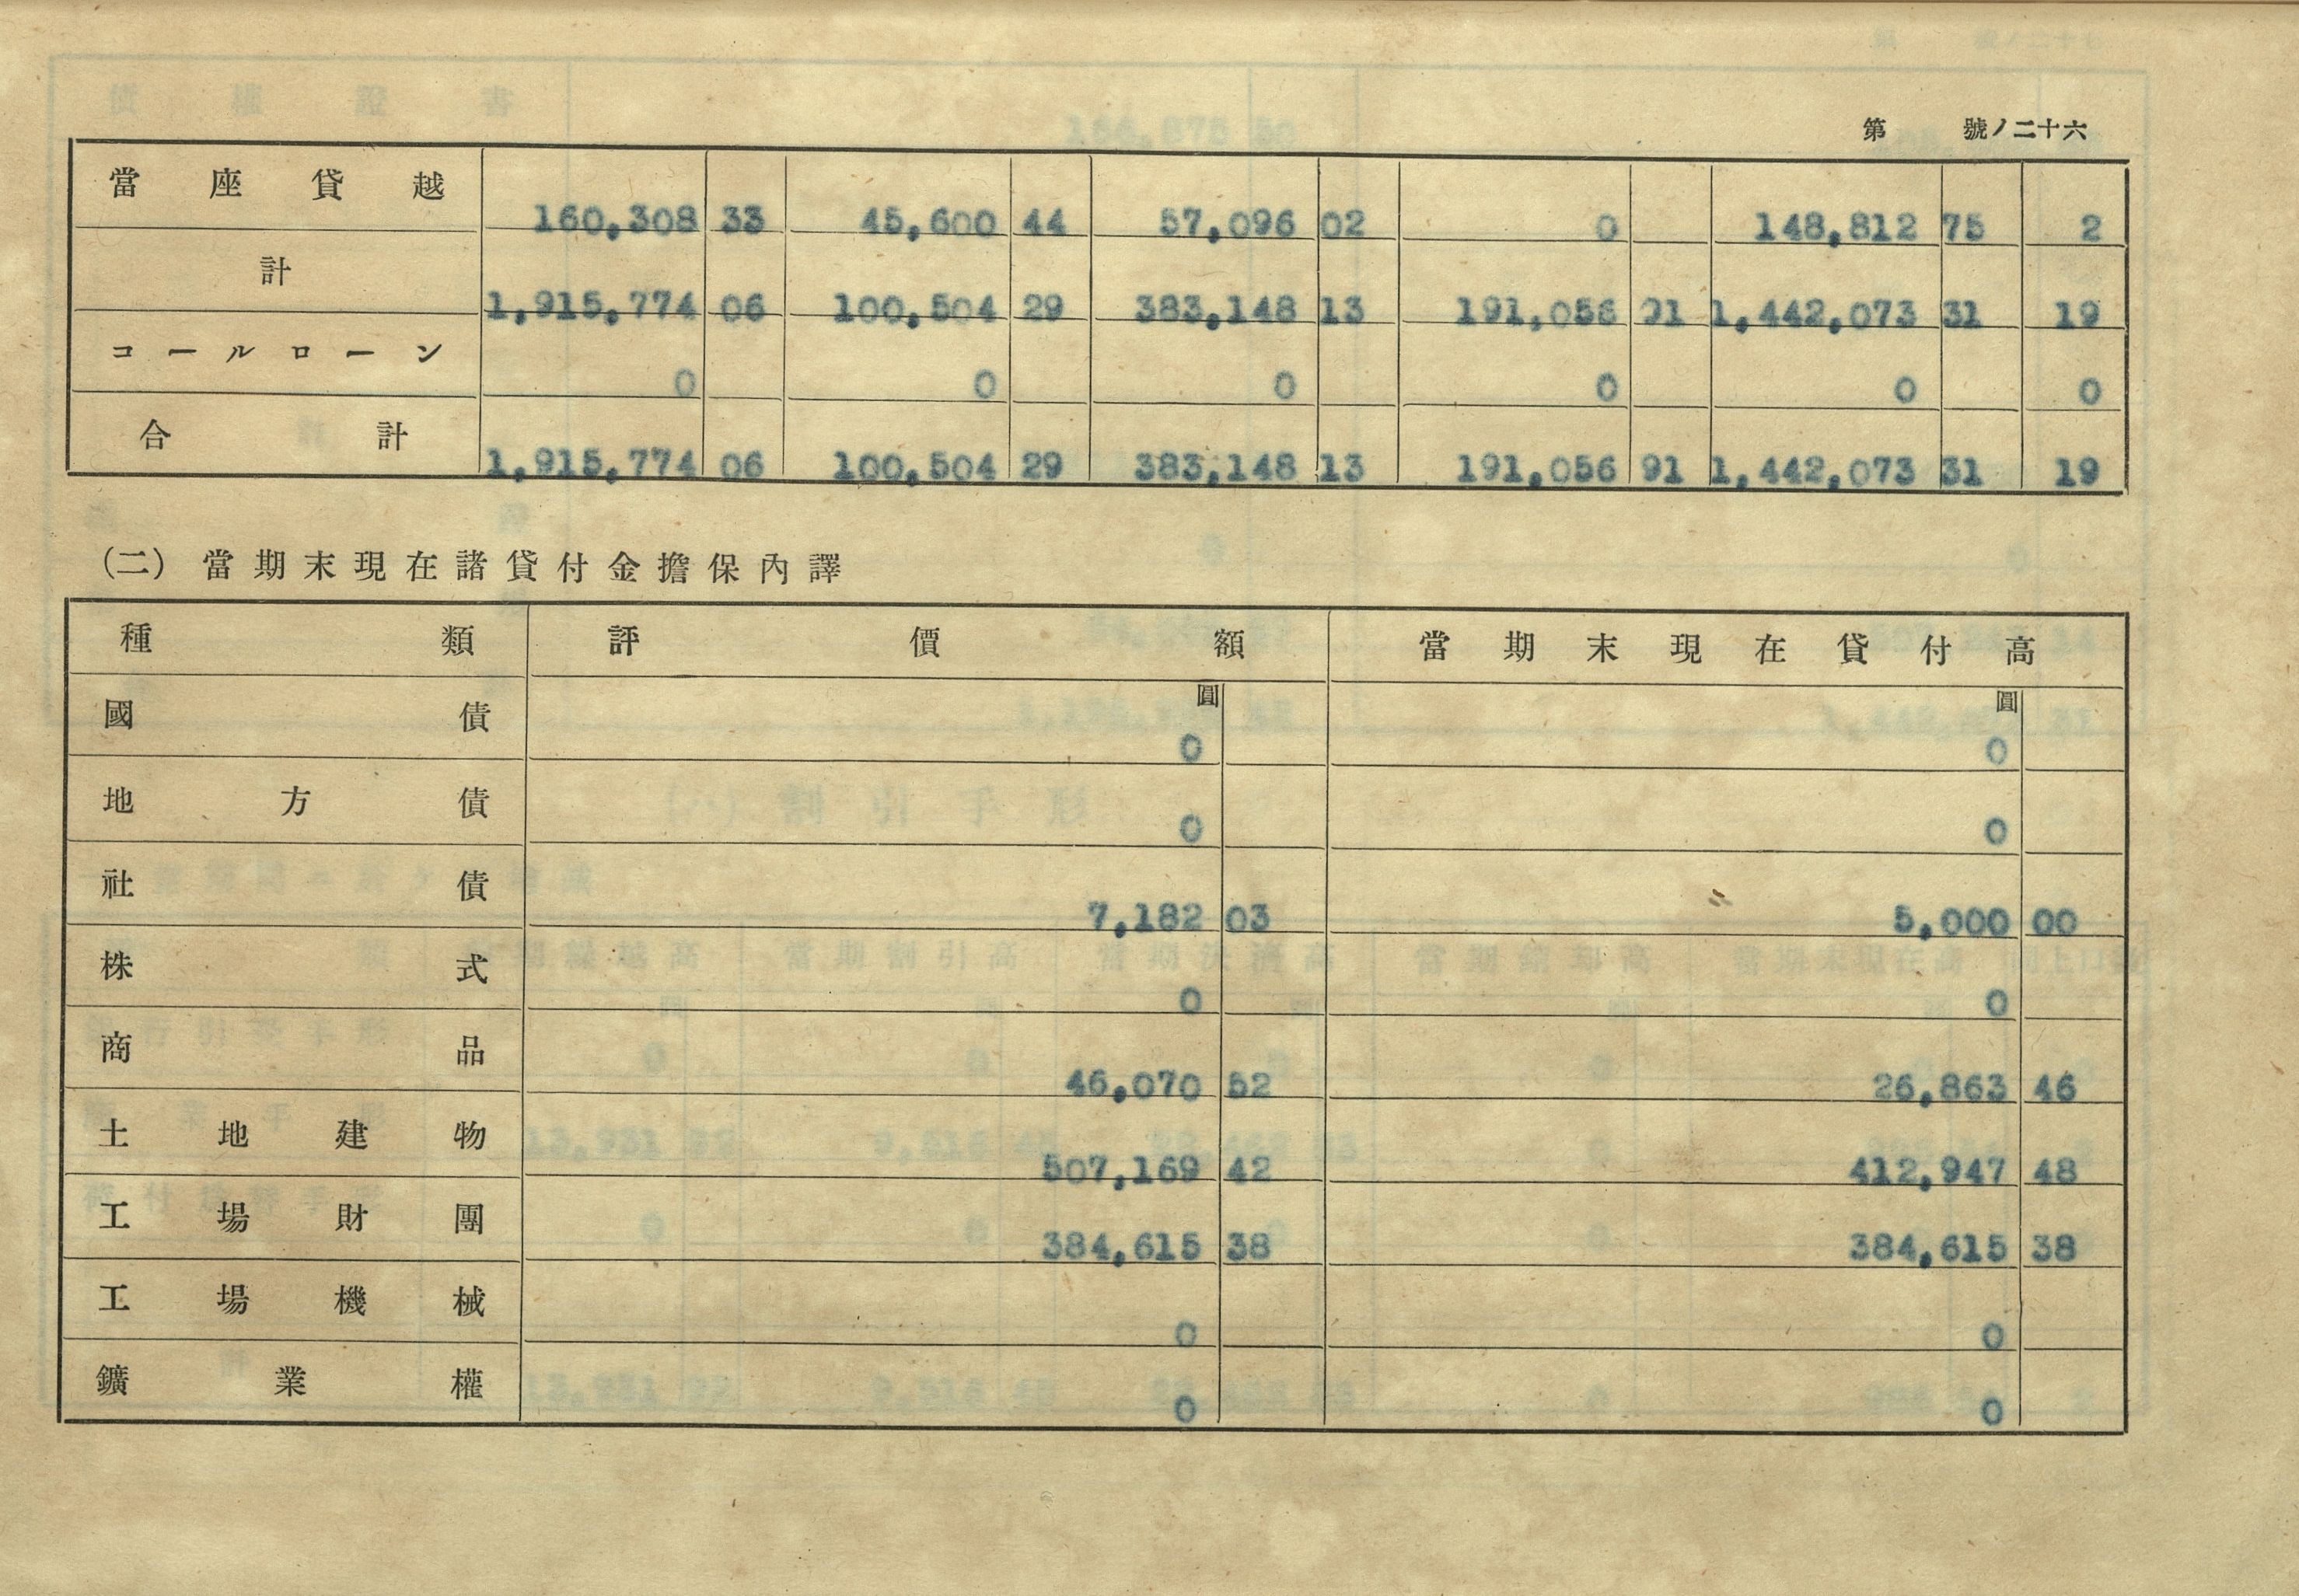 第 號ノ二十六
當座貸越 160,308 33 45,600 44 57,096 02 0 148,812 75 2
計 1,915,774 06 100,504 29 383,148 13 191,056 91 1,442,073 31 19
コールローン 0 0 0 0 0 0
合計 1,915,774 06 100,504 29 383,148 13 191,056 91 1,442,073 31 19
(二) 當期末現在諸貸付金擔保內譯
種類 評價額 當期末現在貸付高
圓 圓
國債 0 0
地方債 0 0
社債 7,182 03 5,000 00
株式 0 0
商品 46,070 52 26,863 46
土地建物 507,169 42 412,947 48
工場財團 384,615 38 384,615 38
工場機械 0 0
鑛業權 0 0